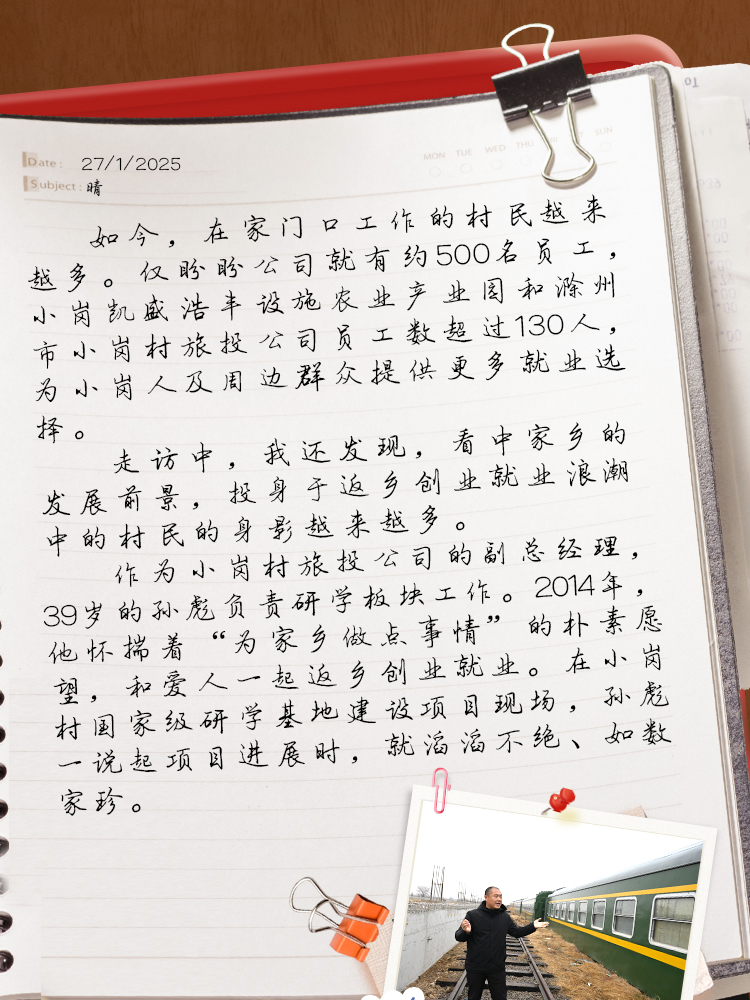 Date: 27/1/2025
MON TUE WED THU SUN
Subject: 晴
如今，在家门口工作的村民越来
越多。仅盼盼公司就有约500名员工，
小岗凯盛浩丰设施农业产业园和滁州
市小岗村旅投公司员工数超过130人，
为小岗人及周边群众提供更多就业选
择。
走访中，我还发现，看中家乡的
发展前景，投身于返乡创业就业浪潮
中的村民的身影越来越多。
作为小岗村旅投公司的副总经理，
39岁的孙彪负责研学板块工作。2014年，
他怀揣着“为家乡做点事情”的朴素愿
望，和爱人一起返乡创业就业。在小岗
村国家级研学基地建设项目现场，孙彪
一说起项目进展时，就滔滔不绝、如数
家珍。